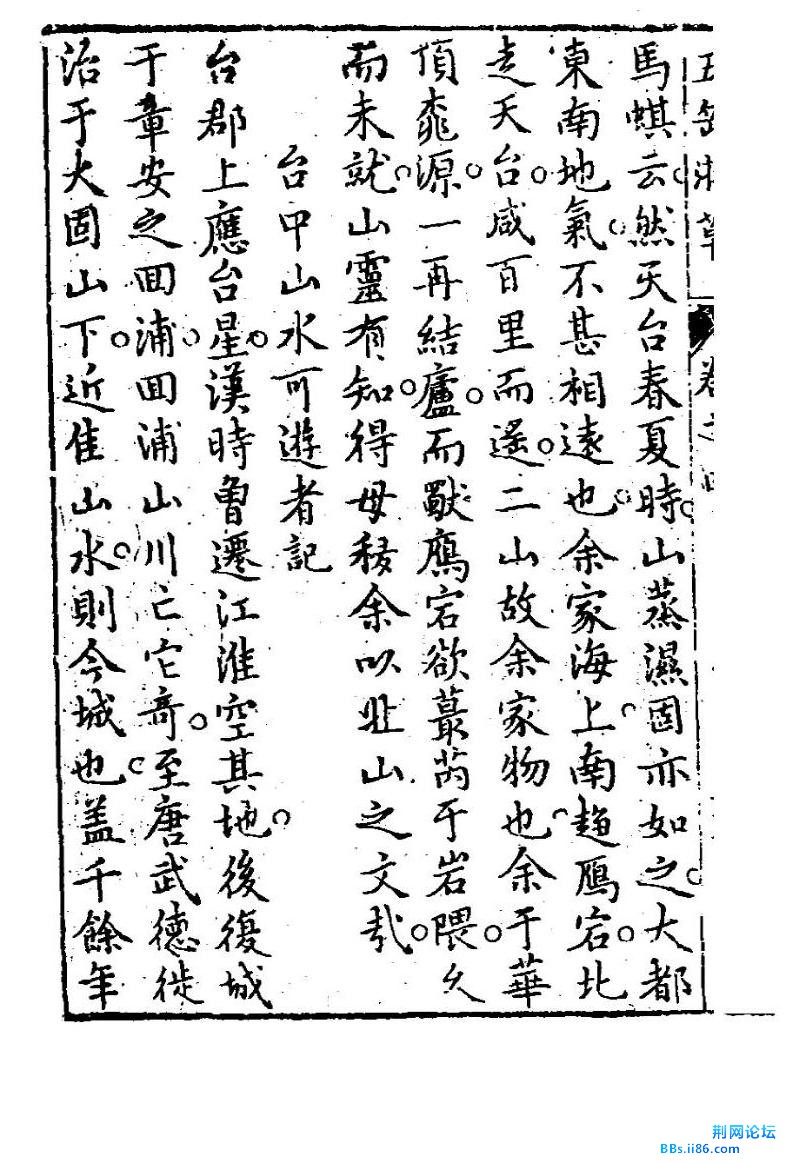 五岳游草 卷之四
馬蜞云然天台春夏時山蒸濕固亦如之大都
東南地氣不甚相遠也余家海上南趨鴈宕北
走天台咸百里而遙二山故余家物也余于華
頂桃源一再結廬而獸鷹宕欲蕞芮于岩隈久
而未就山靈有知得毋移余以北山之文哉
台中山水可遊者記
台郡上應台星漢時曾遷江淮空其地後復城
于章安之回浦回浦山川亡它奇至唐武德徙
治于大固山下近佳山水則今城也盖千餘年
荆网论坛
BBs.ii86.com